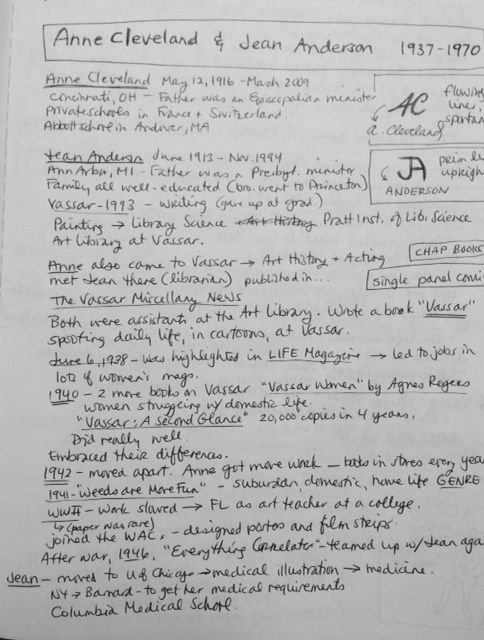 Anne Cleveland & Jean Anderson 1937-1970
Anne Cleveland May 12, 1916 - March 2009
Cincinnati, OH - Father was an Episcopalian minister
Private schools in France + Switzerland.
Abbott school in Andover, MA
AC
a. Cleveland
flowing
line,
spontan
Jean Anderson June 1913 - Nov. 1994
Ann Arbor, MI - Father was a Presbyt. minister
Family all well-educated (bro. went to Princeton)
Vassar - 1993 - writing (gave up at grad.)
Painting → Library Science Art History Pratt Inst. of Lib. Science
Art Library at Vassar.
JA
ANDERSON
prim li
uprigh
CHAP BOOKS
single panel comi
Anne also came to Vassar → Art History + Acting
met Jean there (librarian) published in...
The Vassar Miscellany News
Both were assistants at the Art Library. Wrote a book "Vassar"
spoofing daily life, in cartoons, at Vassar.
June 6, 1938 - was highlighted in LIFE Magazine → led to jobs in
lots of women's mags.
1940 - 2 more books on Vassar "Vassar Women" by Agnes Rogers
women struggling w/ domestic life.
"Vassar: A Second Glance" 20,000 copies in 4 years.
Did really well.
Embraced their differences.
1942 - moved apart. Anne got more work - books in stores every yea
1941 - "Weeds are More Fun" - suburban, domestic, home life GENRE
WWII - Work slowed → FL as art teacher at a college.
↳ (paper was rare)
joined the WACs - designed posters and film strips.
After war, 1946, "Everything Correlates" - teamed up w/ Jean aga
Jean - moved to U of Chicago → medical illustration → medicine.
NY → Barnard - to get her medical requirements
Columbia Medical School.